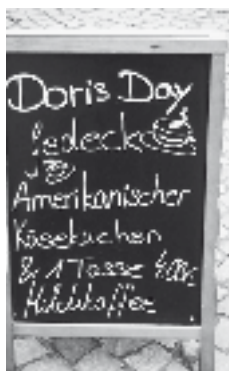 Doris Day
Gedeck
Amerikanischer
Käsekuchen
& 1 Tasse
Milchkaffee